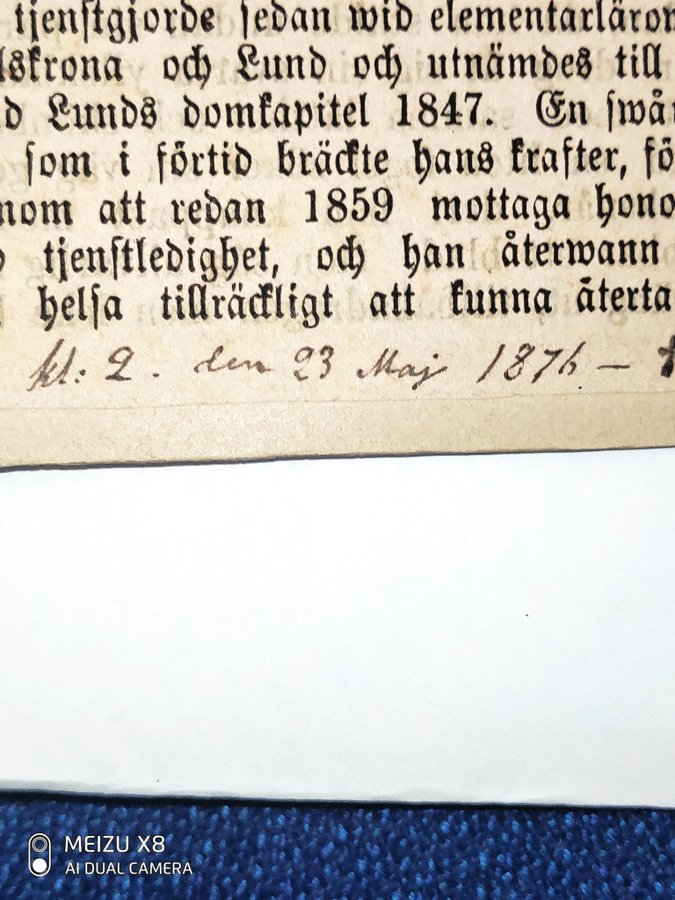 tjenstgjorde sedan wid elementarläro
lskrona och Lund och utnämdes till
d Lunds domkapitel 1847. En swår
som i förtid bräckte hans krafter, fö
nom att redan 1859 mottaga hono
tjenstledighet, och han återwann
helsa tillräckligt att kunna återta
kl: 2. den 23 Maj 1876. —
MEIZU X8
AI DUAL CAMERA